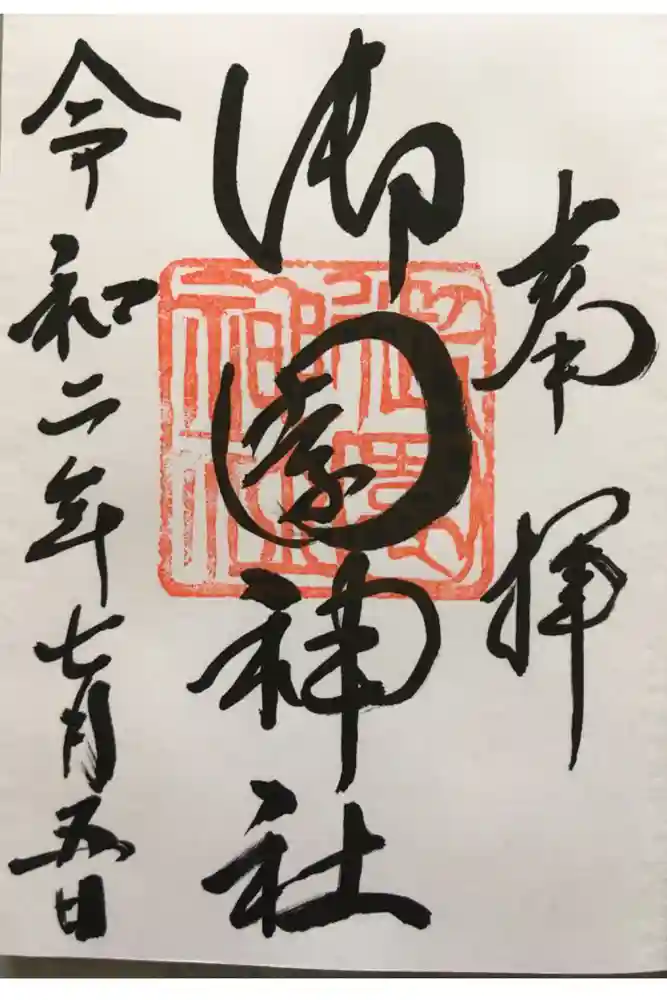 奉拝
御園神社
令和二年七月五日